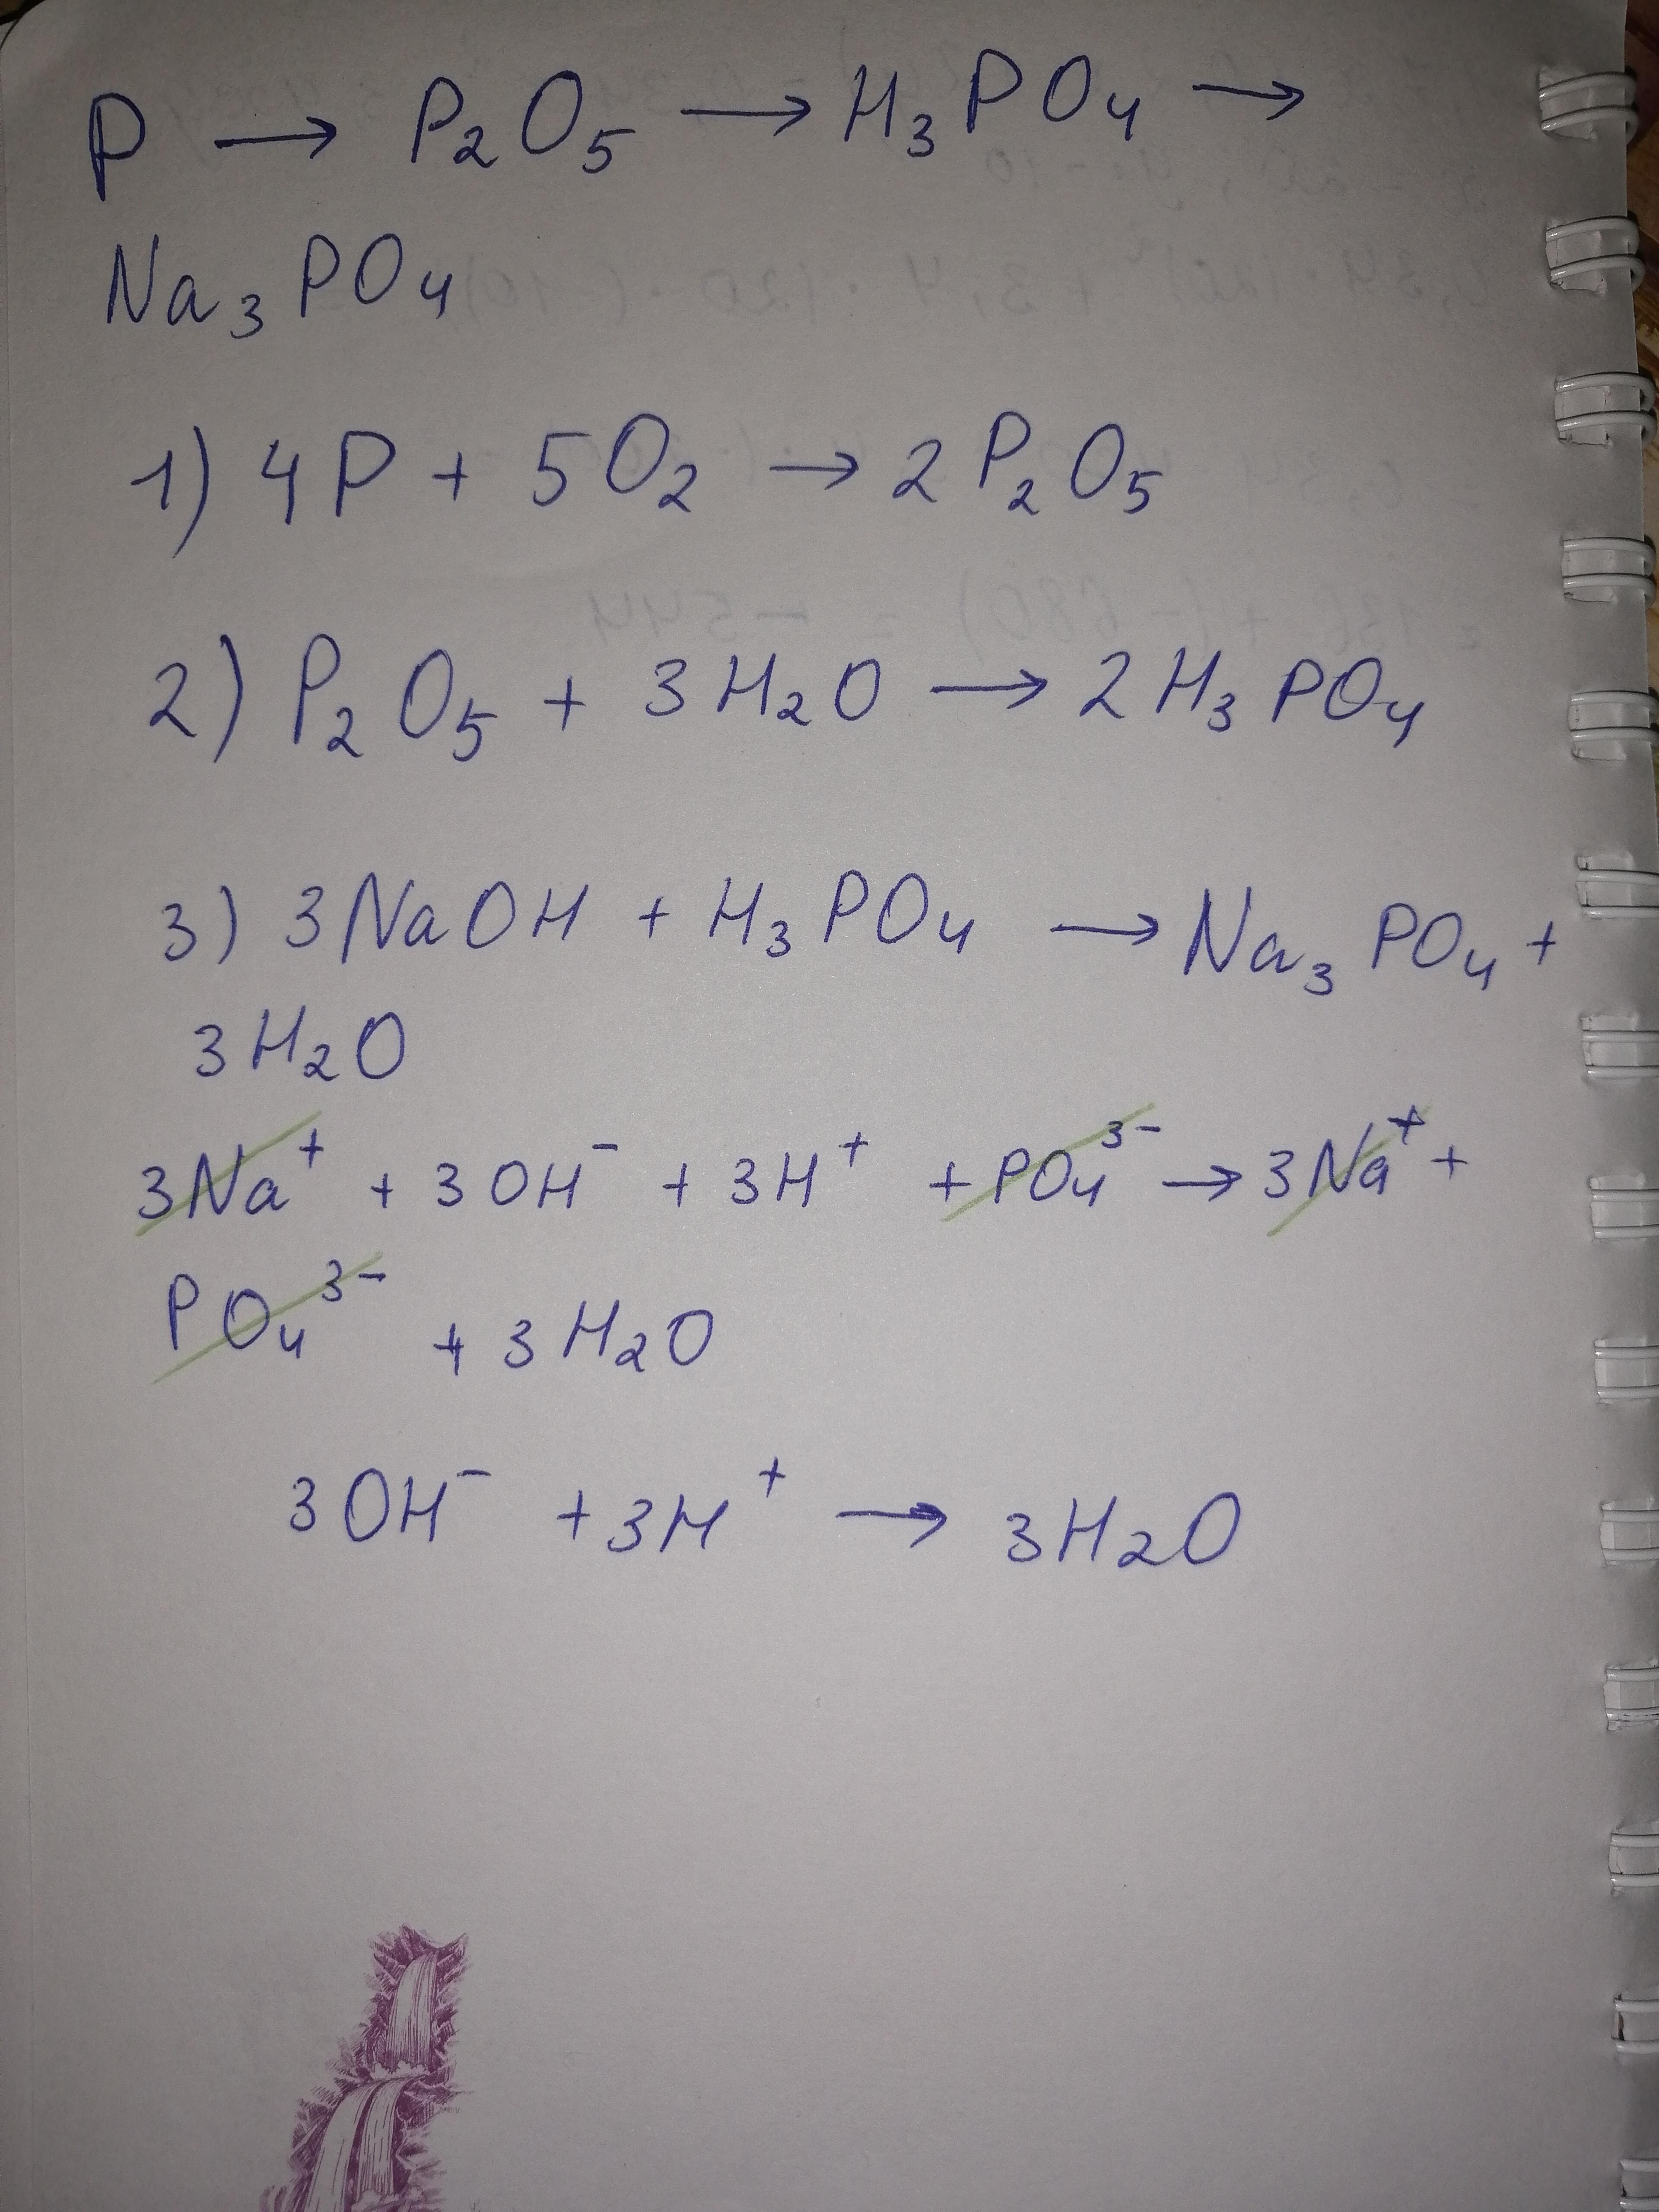 P → P₂O₅ → H₃PO₄ →
Na₃PO₄
1) 4P + 5O₂ → 2P₂O₅
2) P₂O₅ + 3H₂O → 2H₃PO₄
3) 3NaOH + H₃PO₄ → Na₃PO₄ +
3H₂O
3Na⁺ + 3OH⁻ + 3H⁺ + PO₄³⁻ → 3Na⁺ +
PO₄³⁻ + 3H₂O
3OH⁻ + 3H⁺ → 3H₂O